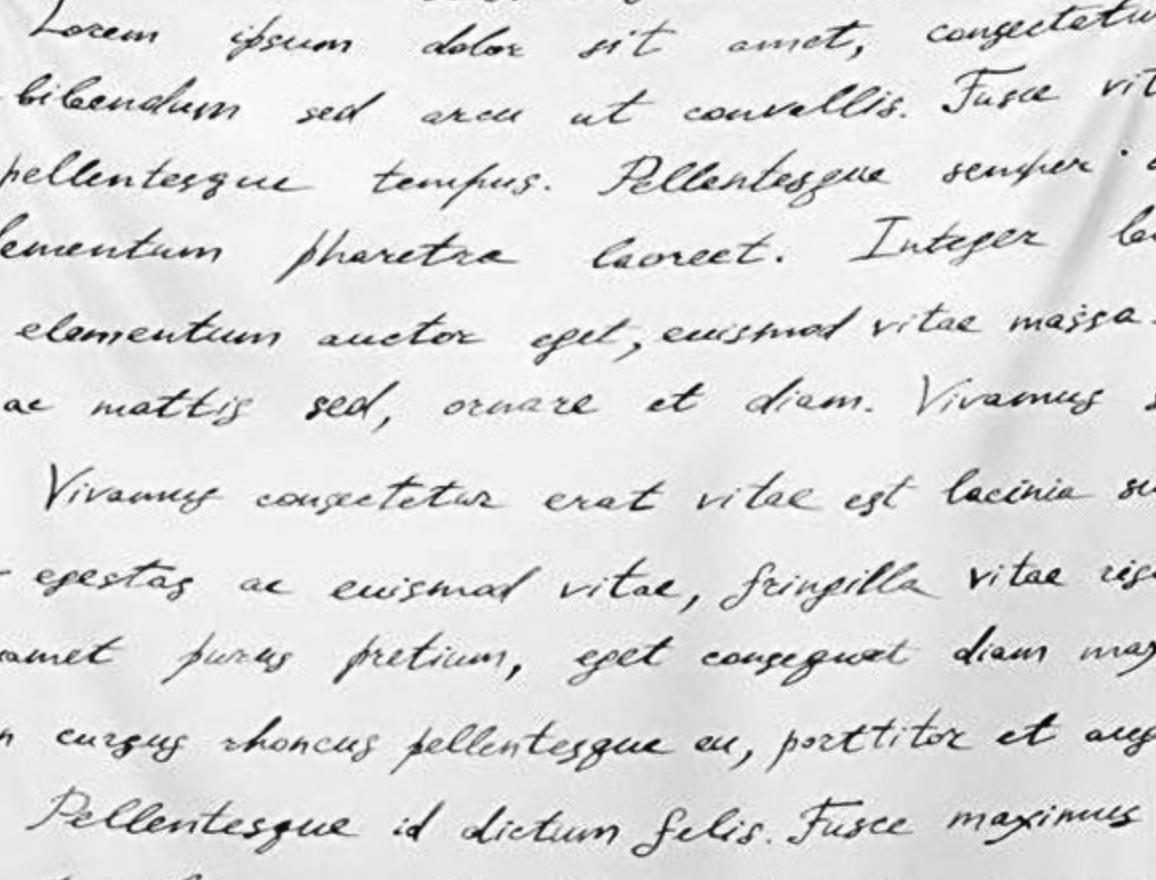 Lorem ipsum dolor sit amet, consectetu
bibendum sed arcu ut convallis. Fusce vit
pellentesque tempus. Pellentesque semper
lementum pharetra laoreet. Integer
elementum auctor eget, euismod vitae massa.
ac mattis sed, ornare et diam. Vivamus s
Vivamus consectetur erat vitae est lacinia su
egestas ac euismod vitae, fringilla vitae risu
amet purus pretium, eget consequat diam max
n cursus rhoncus pellentesque eu, porttitor et aug
Pellentesque id dictum felis. Fusce maximus